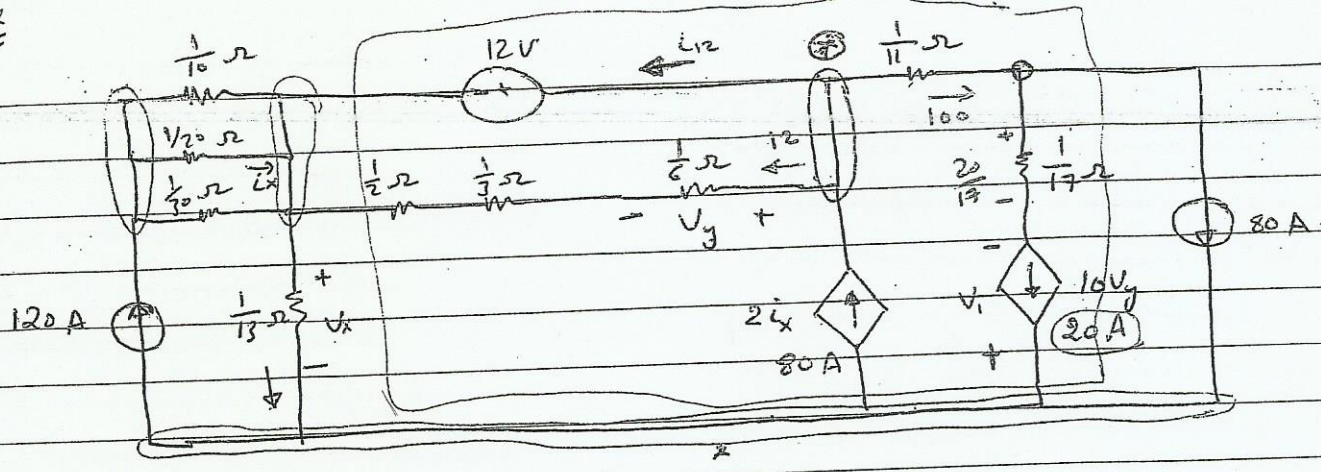 12V
i12
1/10 Ω
1/11 Ω
100
1/20 Ω
ix
1/30 Ω
1/2 Ω
1/3 Ω
1/6 Ω
i2
- Vy +
+
20/17
1/17 Ω
-
80 A
120 A
1/13 Ω
+
Vx
-
2ix
80 A
-
V1
+
10Vy
20A